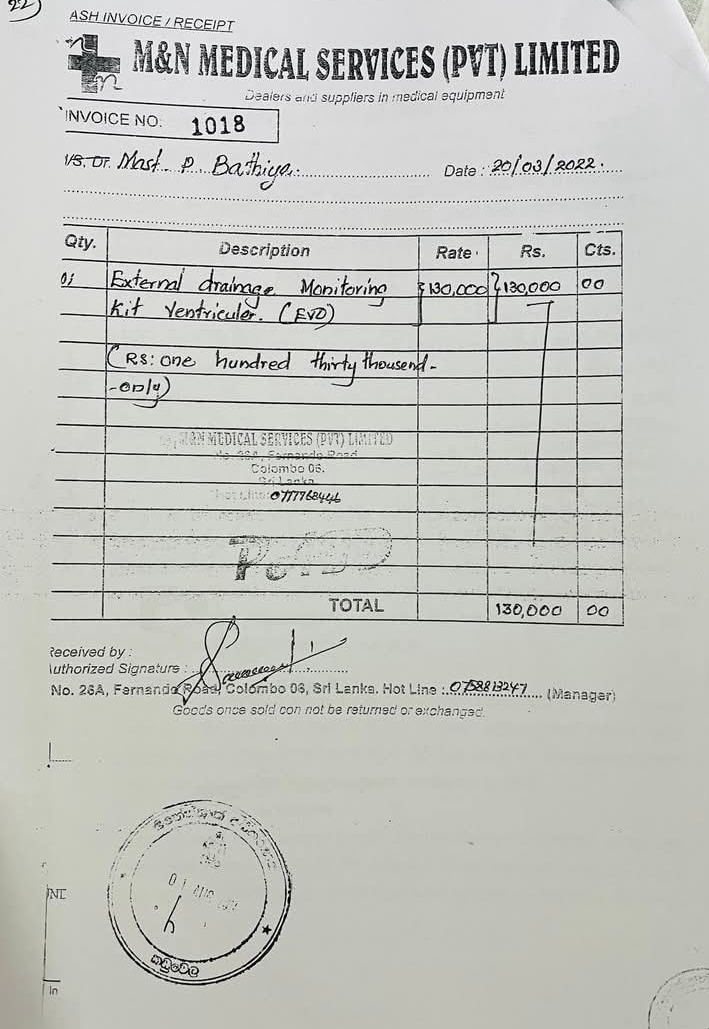 22)
ASH INVOICE / RECEIPT
M&N MEDICAL SERVICES (PVT) LIMITED
Dealers and suppliers in medical equipment
INVOICE NO: 1018
Mast. P. Bathiya. Date : 20/03/2022.
Qty. Description Rate Rs. Cts.
01 External drainage Monitoring 130,000 130,000 00
Kit Ventriculer. (EVD)
(RS: one hundred thirty thousend-
-only)
M&N MEDICAL SERVICES (PVT) LIMITED
No. 26A, Fernando Road
Colombo 06.
Sri Lanka
Hot Line: 0777768446
PAID
TOTAL 130,000 00
Received by :
Authorized Signature :
No. 26A, Fernando Road, Colombo 06, Sri Lanka. Hot Line : 0758813247 (Manager)
Goods once sold con not be returned or exchanged.
01 AUG
කොළඹ
INT
In